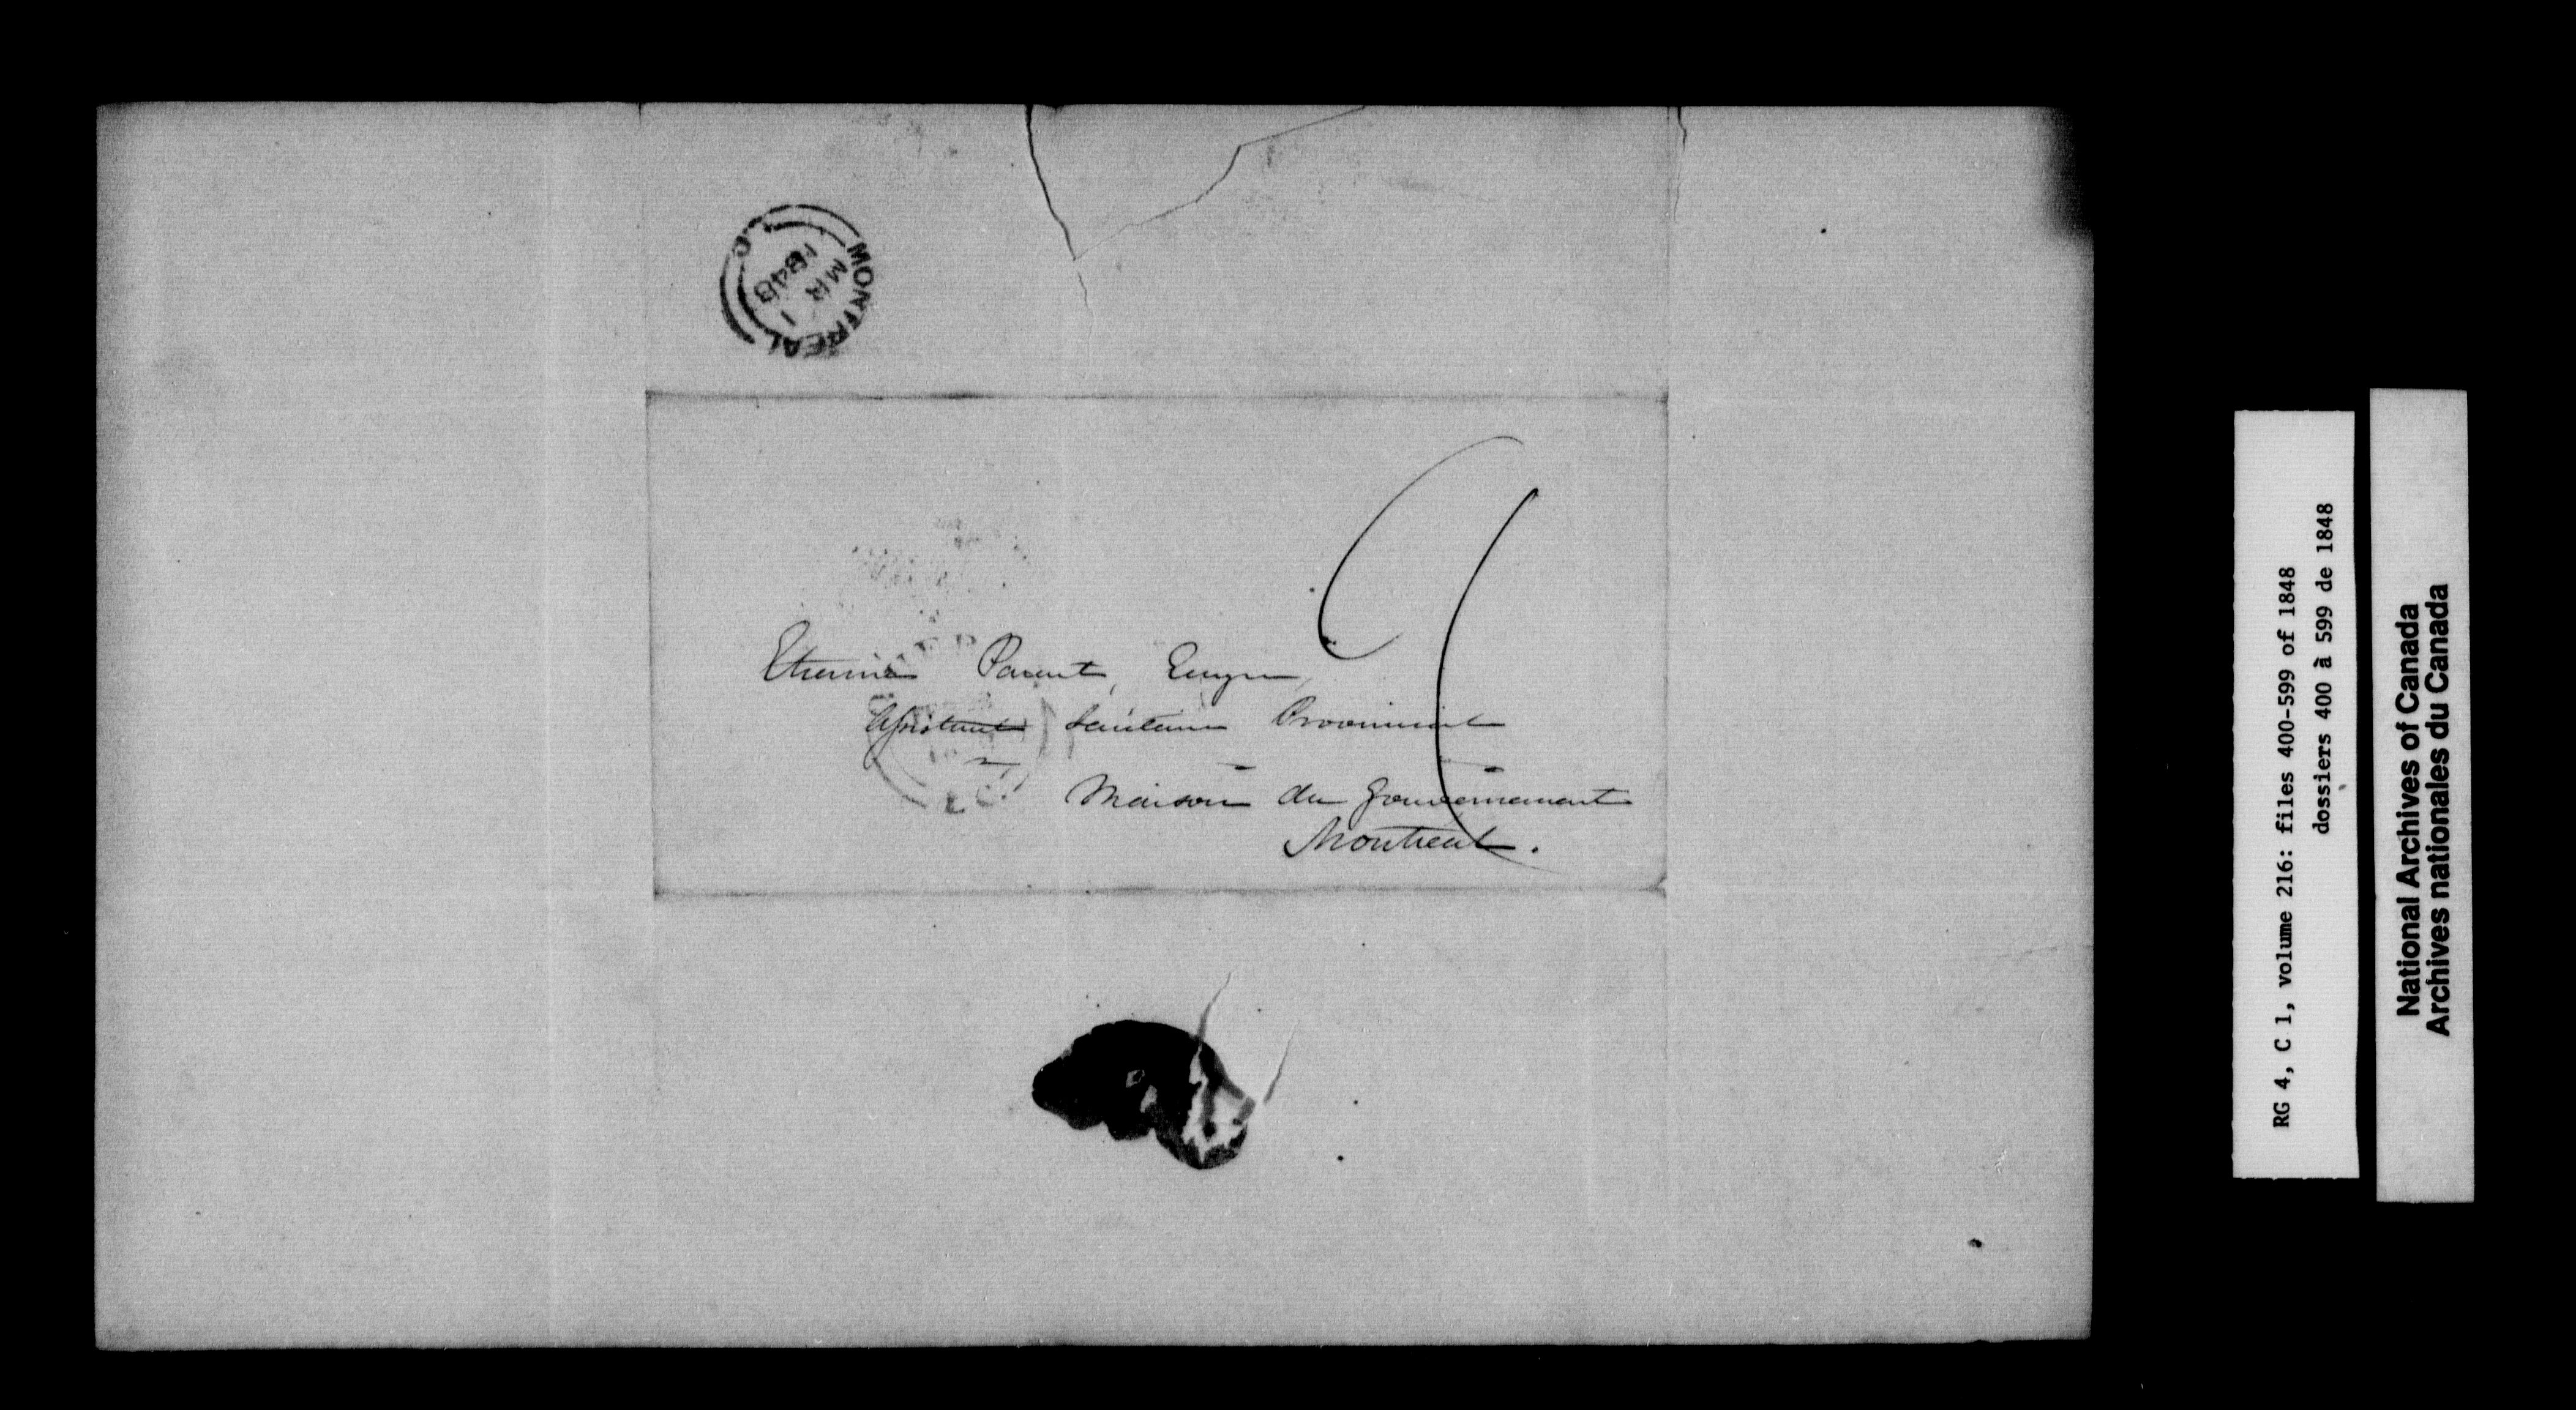 MONTREAL L.C.
MR 1
1848
Etienne Parent, Ecuyer,
Assistant Secrétaire Provincial
Maison du Gouvernement
Montréal.
RG 4, C 1, volume 216: files 400-599 of 1848
dossiers 400 à 599 de 1848
National Archives of Canada
Archives nationales du Canada